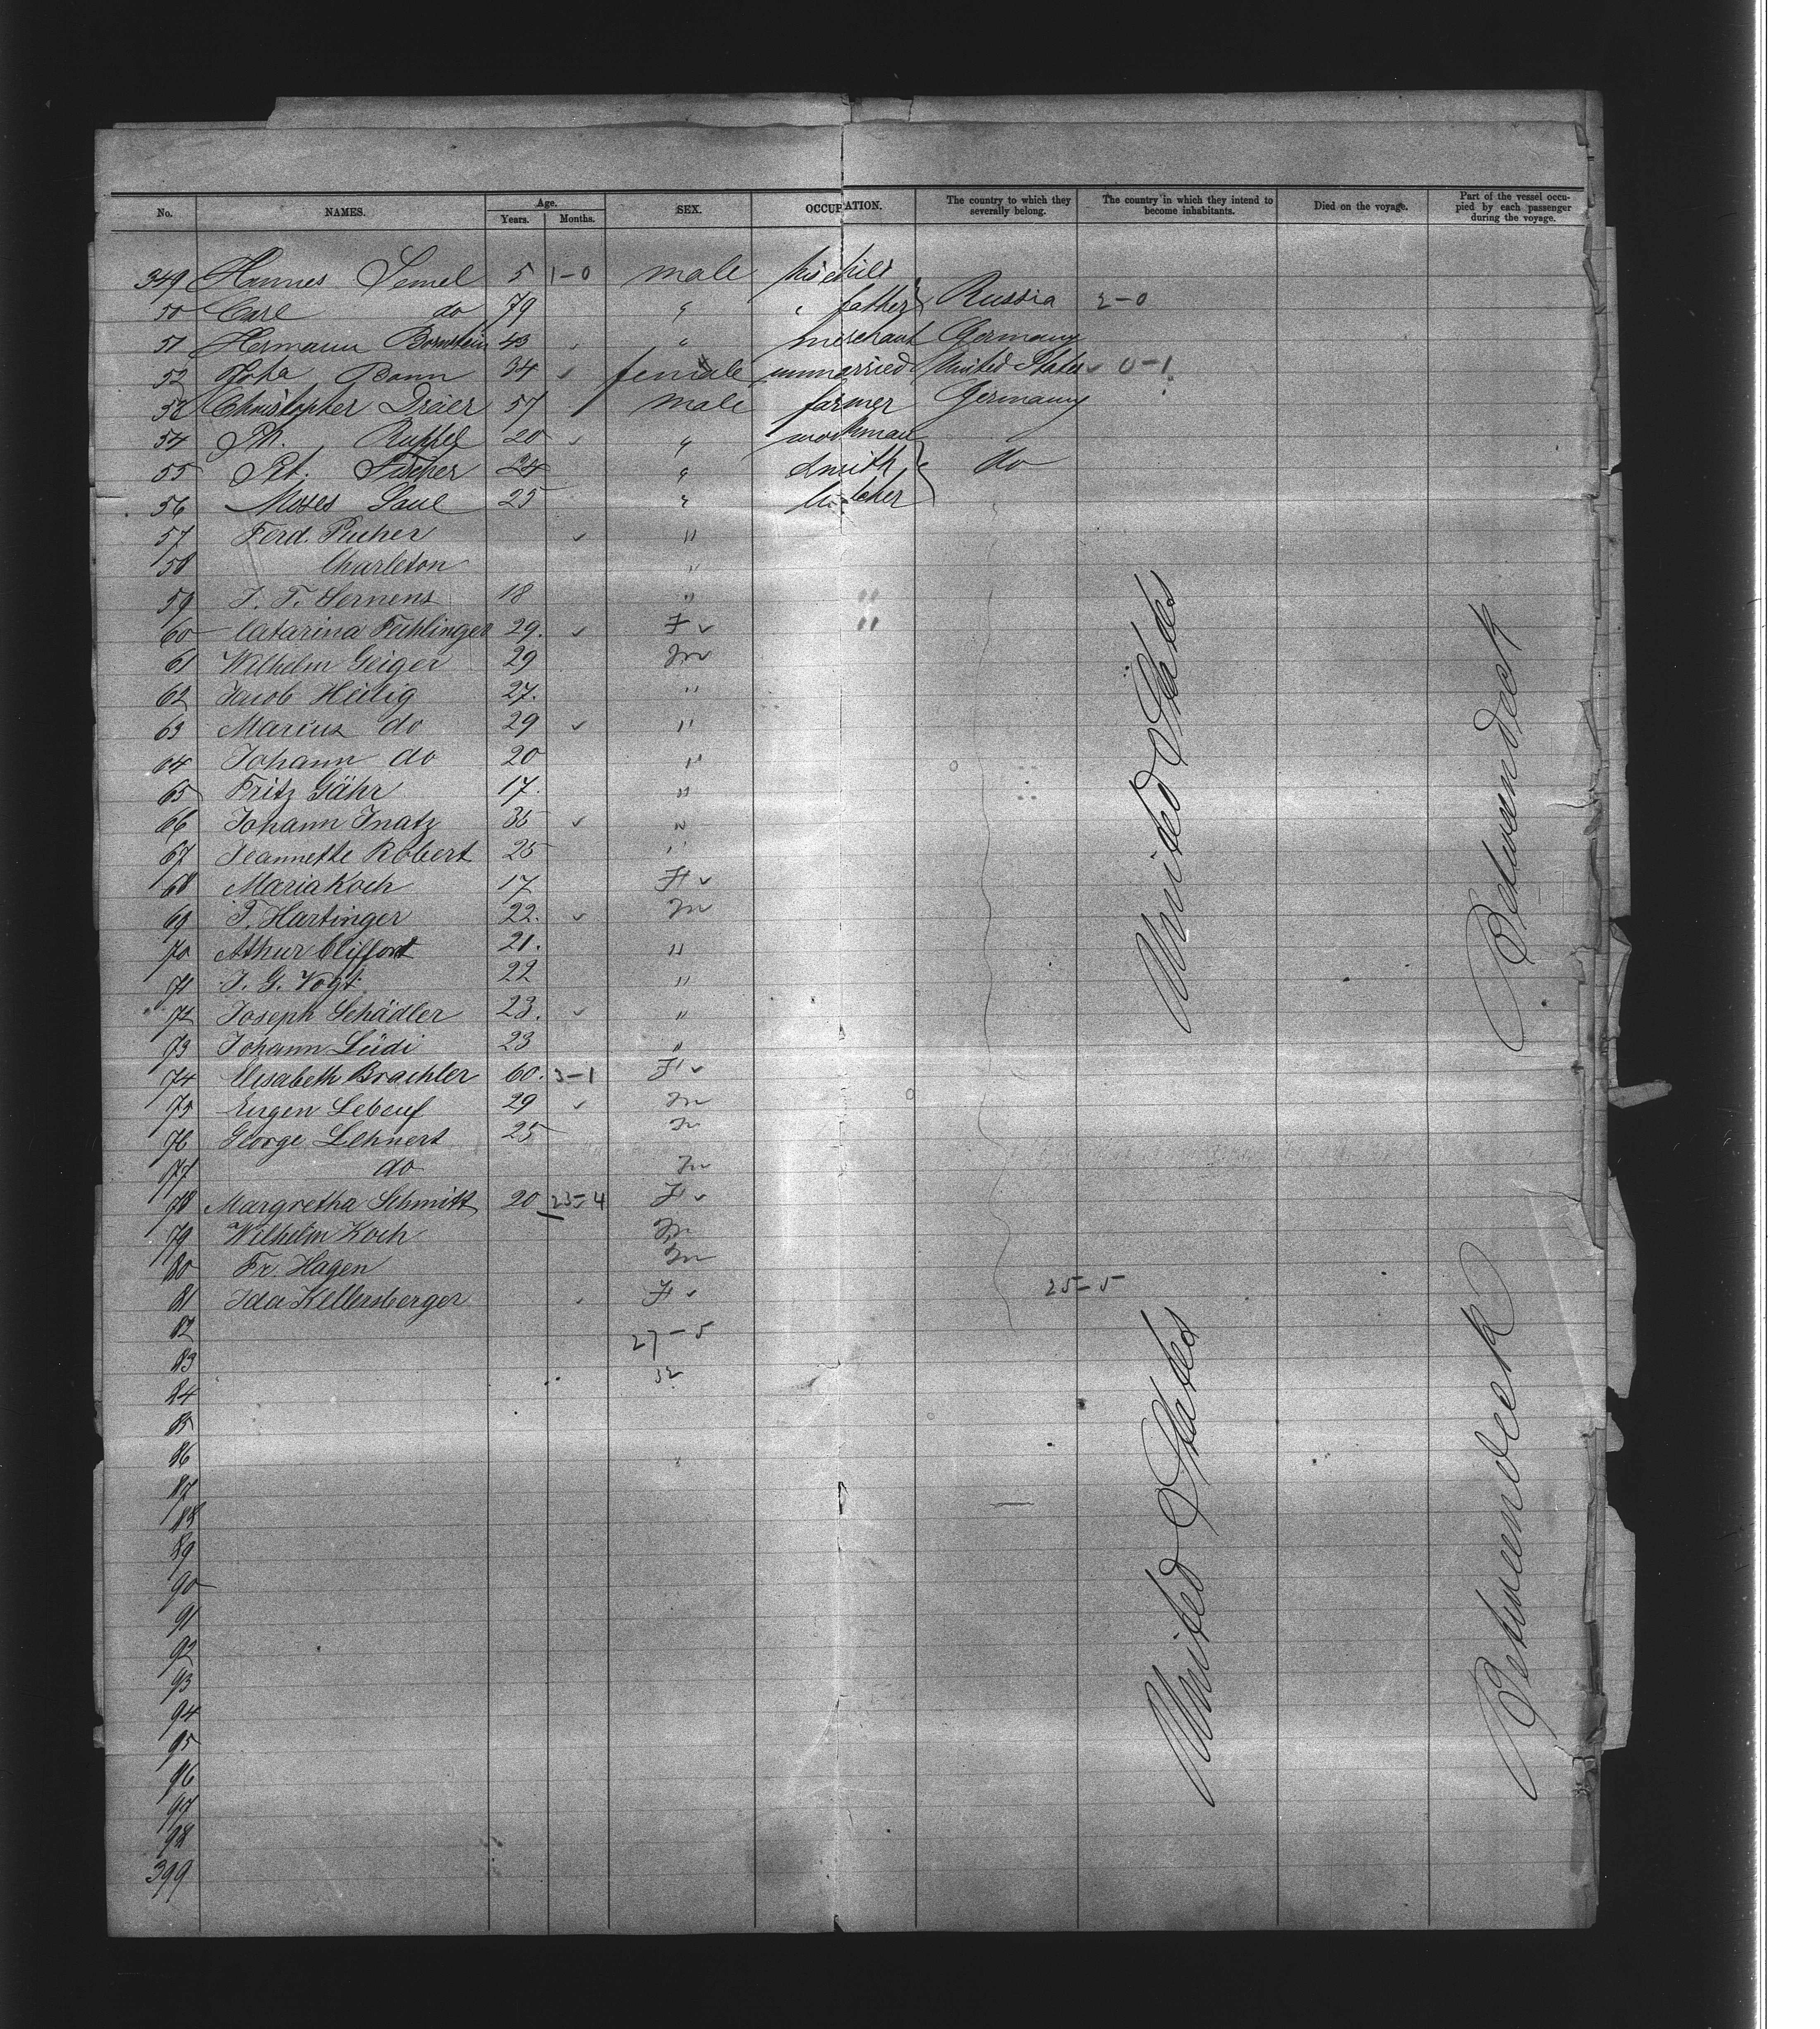 No. NAMES. Age. Years. Months. SEX. OCCUPATION. The country to which they severally belong. The country in which they intend to become inhabitants. Died on the voyage. Part of the vessel occupied by each passenger during the voyage.
349 Hannes Semel 5 1-0 male his child
50 Carl do 79 " " father Russia 2-0
51 Hermann Bornstein 43 " merchant Germany
52 Bonn 34 female unmarried United States 0-1
53 Christopher Dreier 57 male farmer Germany
54 Ph. Ruppel 20 " workman
55 Pet. Fischer 24 " smith do
56 Moses Saul 25 " butcher
57 Ferd. Pucher "
58 Charleton "
59 J. T. Sernens 18 " "
60 Catarina Feihlinger 29. F "
61 Wilhelm Geiger 29 m
62 Jacob Heilig 27. "
63 Marcus do 29 "
64 Johann do 20 "
65 Fritz Gähr 17. "
66 Johann Inatz 35 "
67 Jeannette Robert 25 "
68 Maria Koch 17 F
69 T. Hartinger 22. m
70 Athur Cliffont 21. "
71 J. G. Vogt 22 "
72 Joseph Schädler 23. "
73 Johann Lüdi 23 "
74 Elisabeth Brachler 60. 3-1 F
75 Eugen Lebouf 29 m
76 George Lehnert 25 m
77 do m
78 Margretha Schmitt 20 23-4 F
79 Wilhelm Koch m
80 Fr. Hagen m
81 Ida Kellersberger F 25-5
82 27-5
83 32
84
85
86
87
88
89
90
91
92
93
94
95
96
97
98
399
United States
Betweendeck
United States
Betweendeck